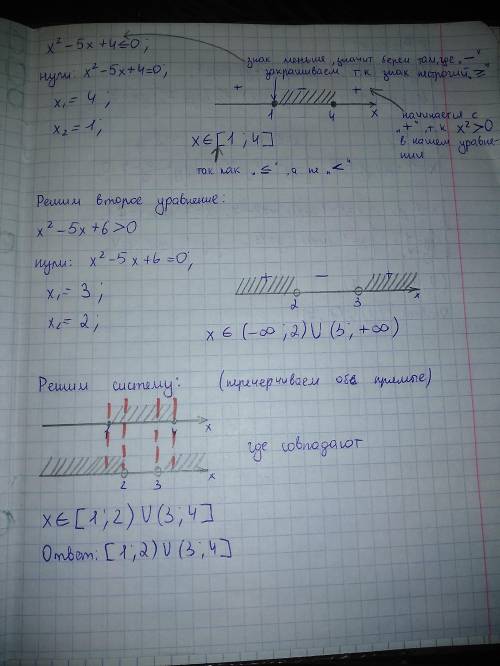 x² - 5x + 4 ≤ 0;
знак меньше, значит берем там, где „ — "
закрашиваем т.к. знак нестрогий „ ≥ "
нули: x² - 5x + 4 = 0;
x₁ = 4;
x₂ = 1;
+ — +
1 4 x
начинается с
„ + ", т.к. x² > 0
в нашем уравне-
нии
x ∈ [1; 4]
так как „ ≤ ", а не „ < "
Решим второе уравнение:
x² - 5x + 6 > 0
нули: x² - 5x + 6 = 0;
x₁ = 3;
x₂ = 2;
+ — +
2 3 x
x ∈ (-∞; 2) ∪ (3; +∞)
Решим систему: (перечерчиваем обе прямые)
1 4 x
где совпадают
2 3 x
x ∈ [1; 2) ∪ (3; 4]
Ответ: [1; 2) ∪ (3; 4]